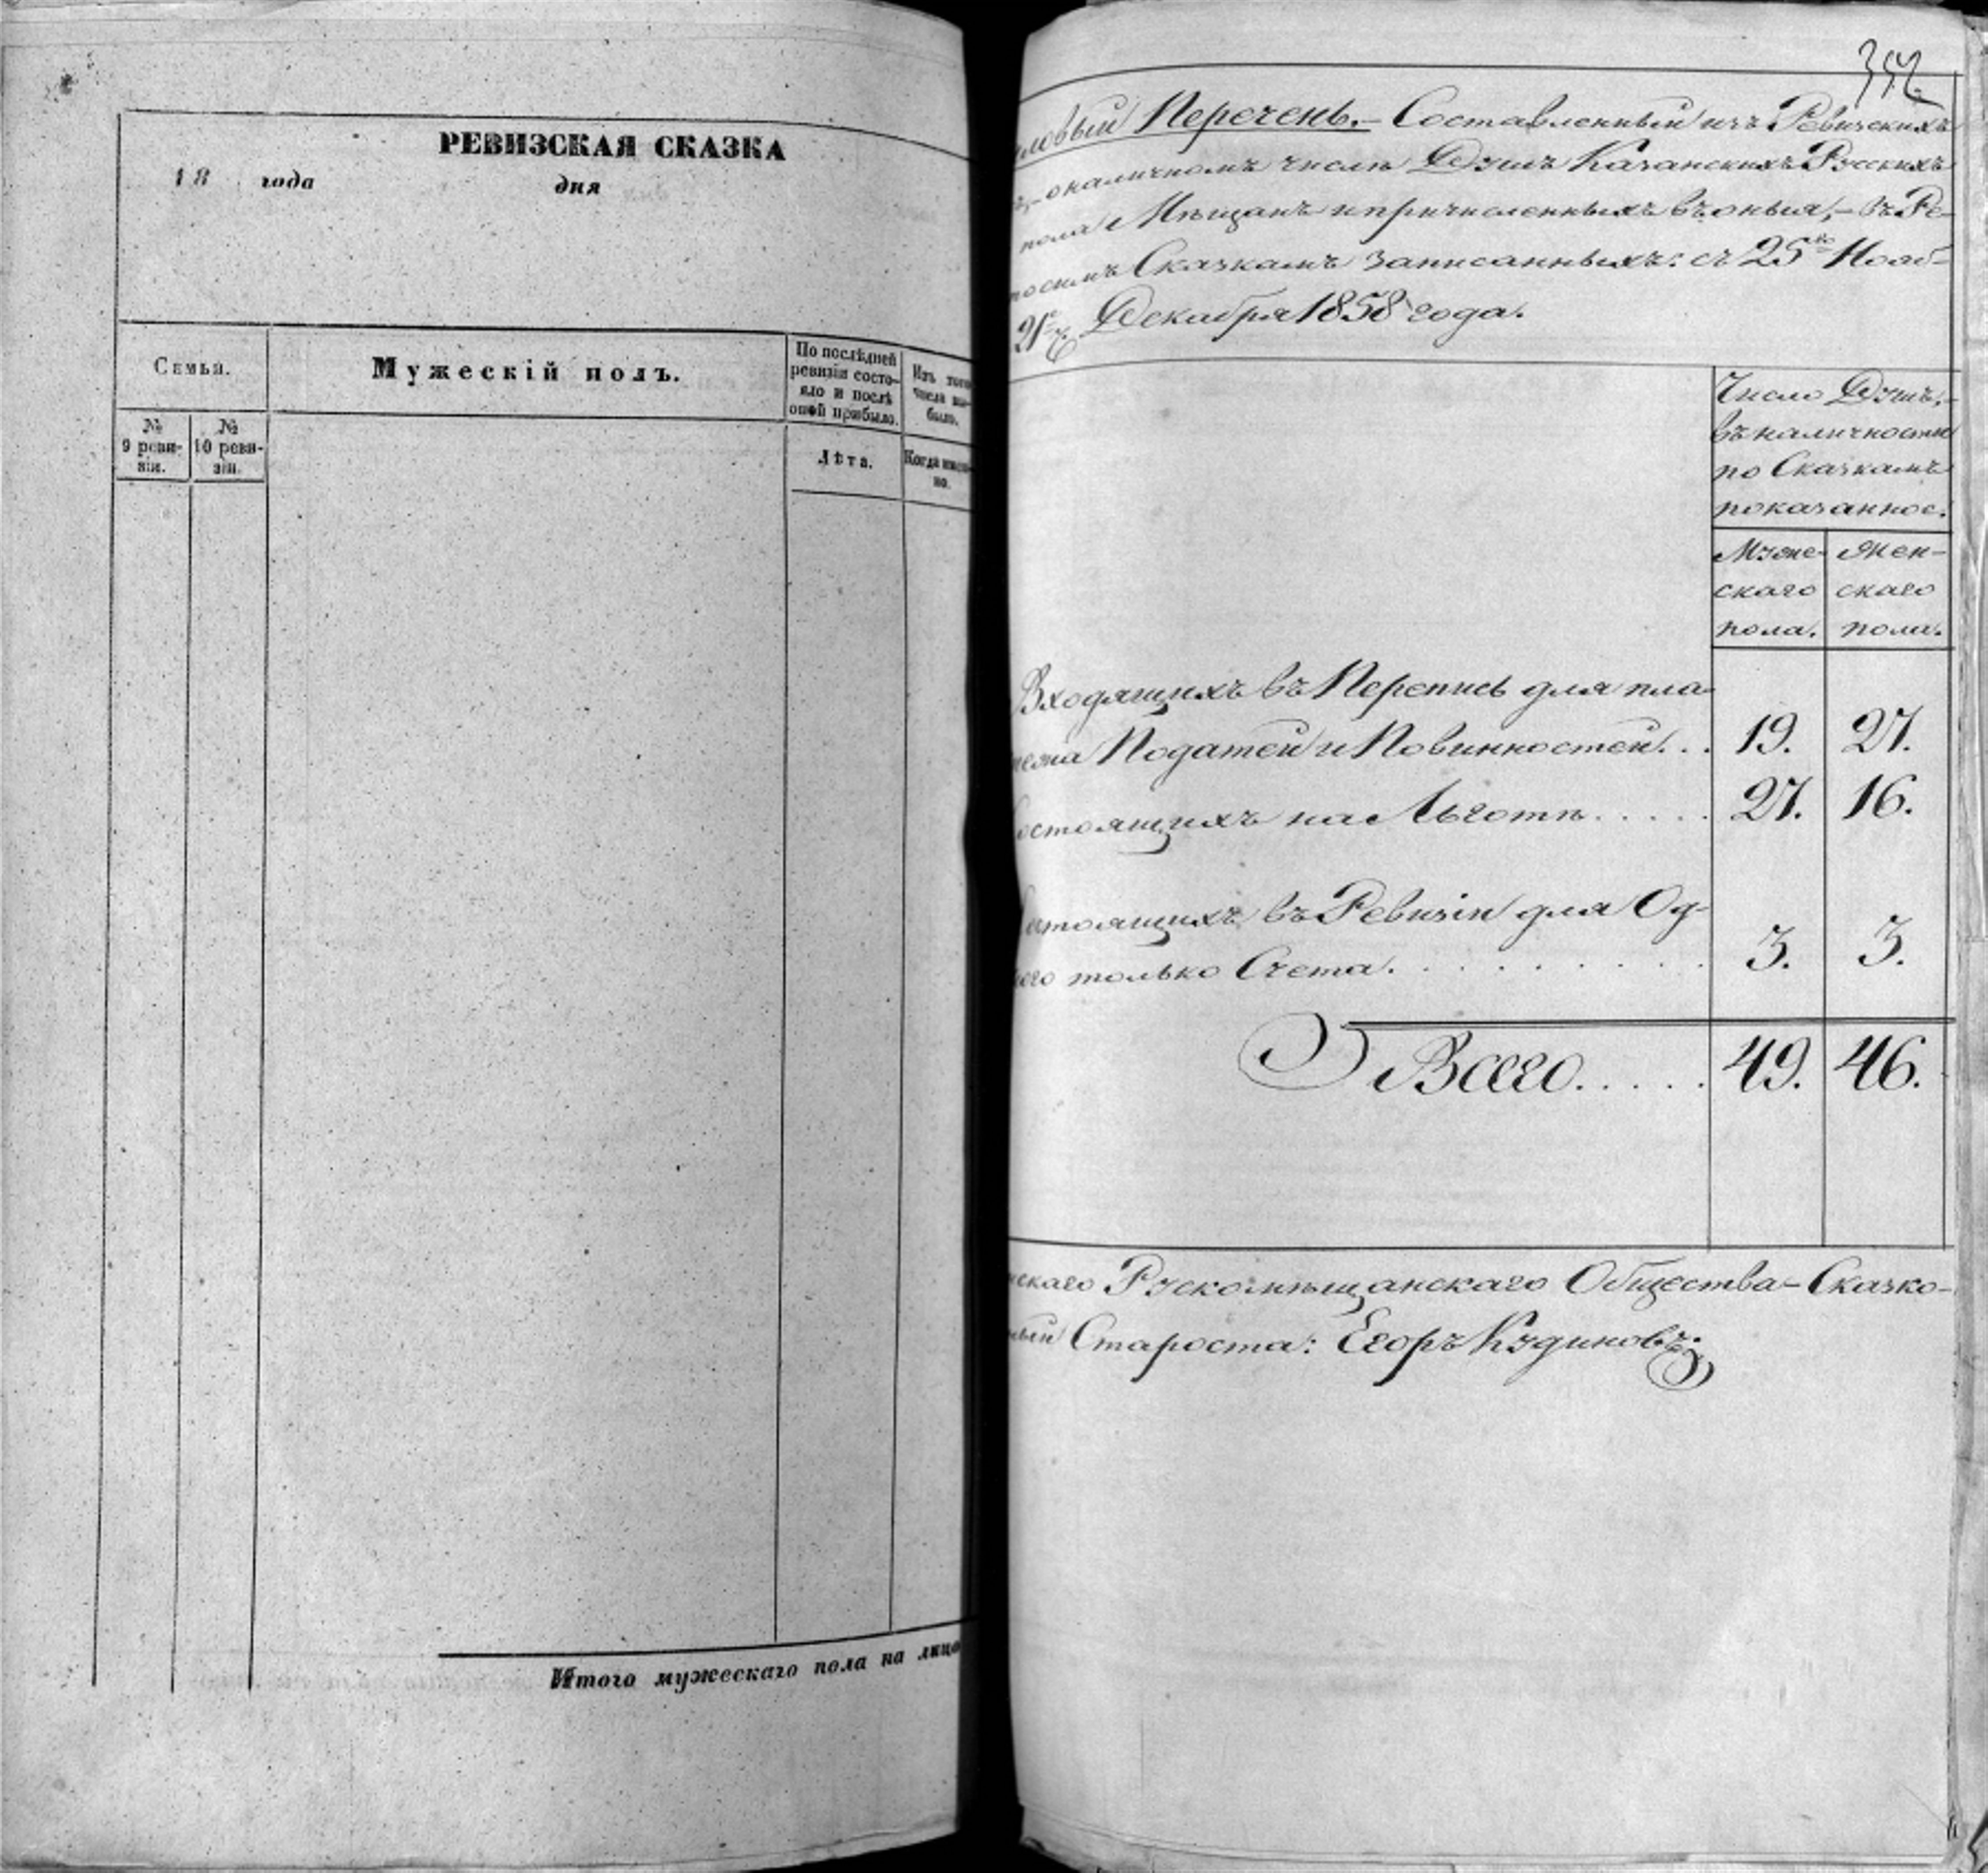 РЕВИЗСКАЯ СКАЗКА
18 года дня
Семьи.
Мужескій полъ.
По послѣдней
ревизіи состо-
яло и послѣ
оной прибыло.
Изъ того
числа вы-
было.
№
9 реви-
зіи.
№
10 реви-
зіи.
Лѣта.
Когда имен-
но.
Итого мужескаго пола на лицо
352
Перечень.- Составленный изъ Ревизскихъ
о наличномъ числѣ Душъ Казанскихъ Русскихъ
пола Мѣщанъ и причисленныхъ въ оныя,- въ Ре-
по симъ Сказкамъ записанныхъ: съ 25го Нояб-
21е Декабря 1858 года.
Число Душъ,-
въ наличности
по Сказкамъ
показанное.
Муже-
скаго
пола.
Жен-
скаго
пола.
Входящихъ въ Перепись для пла-
тежа Податей и Повинностей... 19. 27.
остоящихъ на Льготѣ..... 27. 16.
стоящихъ въ Ревизіи для Од-
ного только Счета.......... 3. 3.
Всего..... 49. 46.
нскаго Рускомѣщанскаго Общества- Сказко-
ный Староста: Егоръ Кудиновъ: